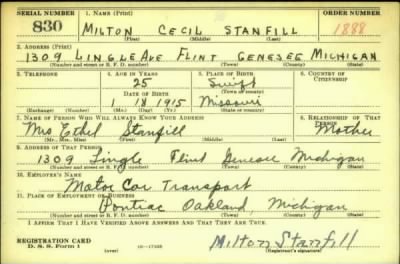 SERIAL NUMBER 1. NAME (Print) ORDER NUMBER
830 MILTON CECIL STANFILL 1888
(First) (Middle) (Last)
2. ADDRESS (Print)
1309 LINGLE AVE FLINT GENESEE MICHIGAN
(Number and street or R. F. D. number) (Town) (County) (State)
3. TELEPHONE 4. AGE IN YEARS 5. PLACE OF BIRTH 6. COUNTRY OF CITIZENSHIP
25
DATE OF BIRTH (Town or county)
1 18 1915 Missouri
(Exchange) (Number) (Mo.) (Day) (Yr.) (State or country)
7. NAME OF PERSON WHO WILL ALWAYS KNOW YOUR ADDRESS 8. RELATIONSHIP OF THAT PERSON
Mrs Ethel Stanfill Mother
(Mr., Mrs., Miss) (First) (Middle) (Last)
9. ADDRESS OF THAT PERSON
1309 Lingle Flint Genesee Michigan
(Number and street or R. F. D. number) (Town) (County) (State)
10. EMPLOYER'S NAME
Motor Car Transport
11. PLACE OF EMPLOYMENT OR BUSINESS
Pontiac Oakland, Michigan
(Number and street or R. F. D. number) (Town) (County) (State)
I AFFIRM THAT I HAVE VERIFIED ABOVE ANSWERS AND THAT THEY ARE TRUE.
REGISTRATION CARD
D. S. S. Form 1 Milton Stanfill